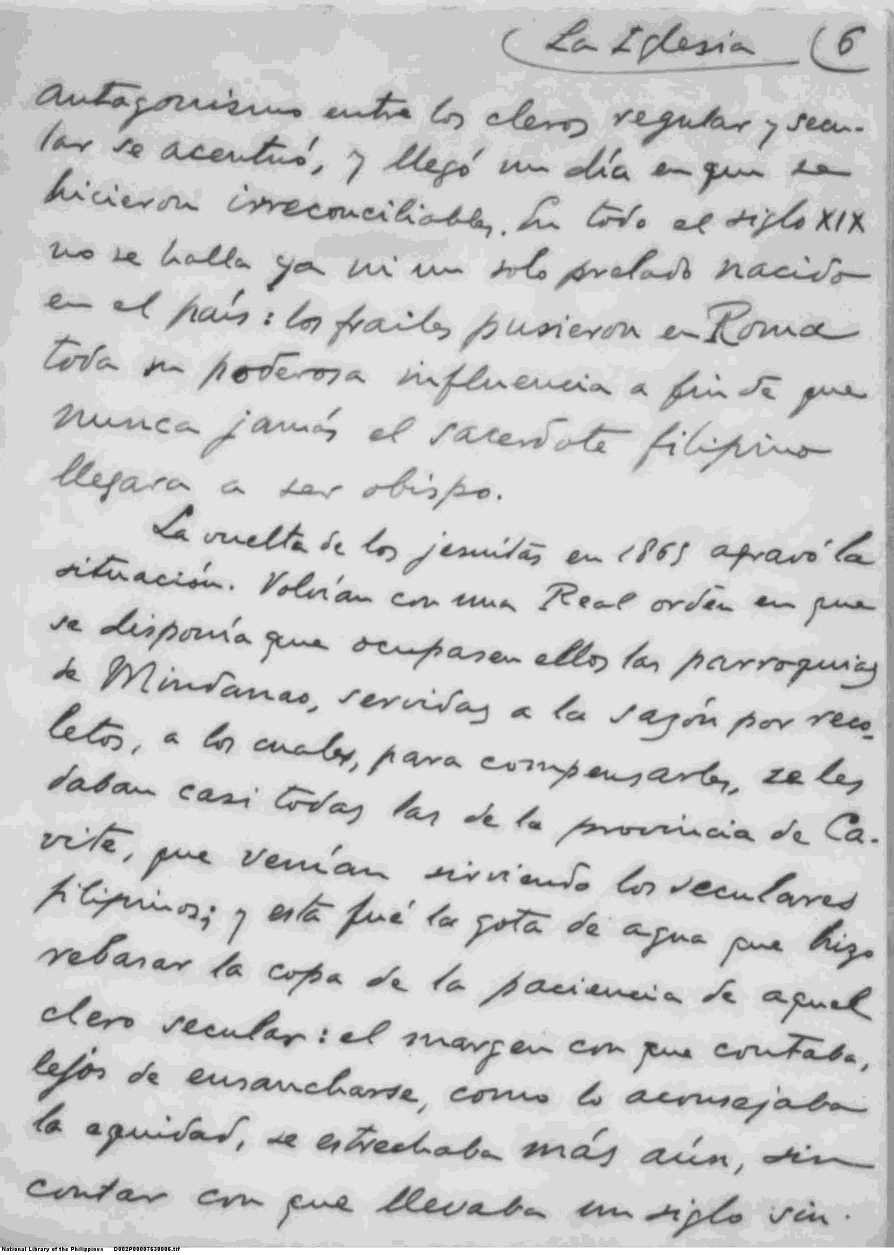 La Iglesia (6
antagonismo entre los cleros regular y secu-
lar se acentuó, y llegó un día en que se
hicieron irreconciliables. En todo el siglo XIX
no se halla ya ni un solo prelado nacido
en el país: los frailes pusieron en Roma
toda su poderosa influencia a fin de que
nunca jamás el sacerdote filipino
llegara a ser obispo.
La vuelta de los jesuítas en 1865 agravó la
situación. Volvían con una Real orden en que
se disponía que ocupasen ellos las parroquias
de Mindanao, servidas a la sazón por reco-
letos, a los cuales, para compensarles, se les
daban casi todas las de la provincia de Ca-
vite, que venían sirviendo los seculares
filipinos; y esta fué la gota de agua que hizo
rebasar la copa de la paciencia de aquel
clero secular: el margen con que contaba,
lejos de ensancharse, como lo aconsejaba
la equidad, se estrechaba más aún, sin
contar con que llevaba un siglo sin
National Library of the Philippines D002P00007630006.tif